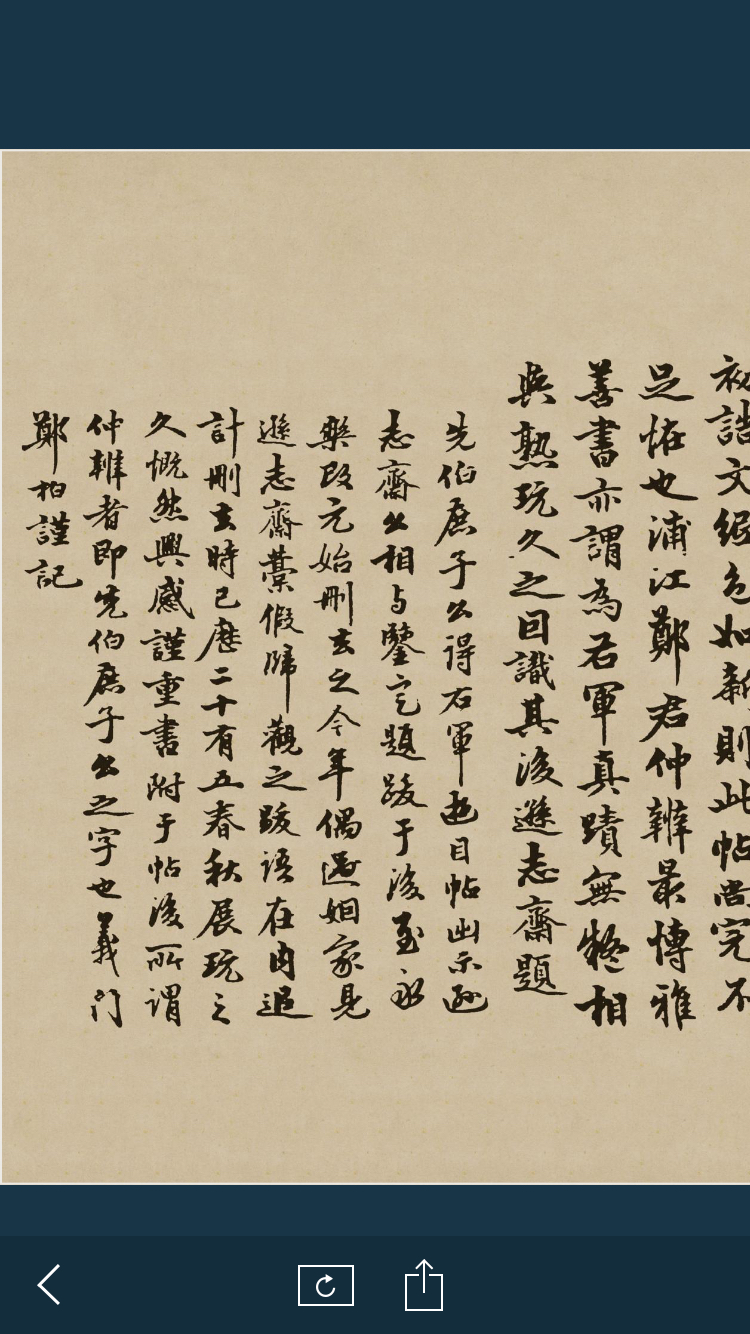 初誥文綬色如新則此帖尚完不
足恠也浦江鄭君仲辨最博雅
善書亦謂為右軍真蹟無疑相
與熟玩久之因識其後遜志齋題
先伯庶子公得右軍遊目帖出示遜
志齋公相与鑒定題跋于後至永
樂改元始刪去之今年偶過姻家見
遜志齋藁假歸觀之跋語在內追
計刪去時已歷二十有五春秋展玩之
久慨然興感謹重書附于帖後所謂
仲辨者即先伯庶子公之字也義門
鄭柏謹記